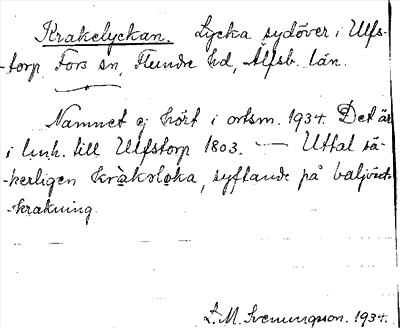 Krakelyckan. Lycka sydöver i Ulfs-
-torp Fors sn, Flundre hd, Älfsb. län.
Namnet ej hört i ortsm. 1934. Det är
i lmh. till Ulfstorp 1803. — Uttal sä-
-kerligen kràkoloka, syftande på baljväxt-
-krakning
L. M. Svenungsson. 1934.